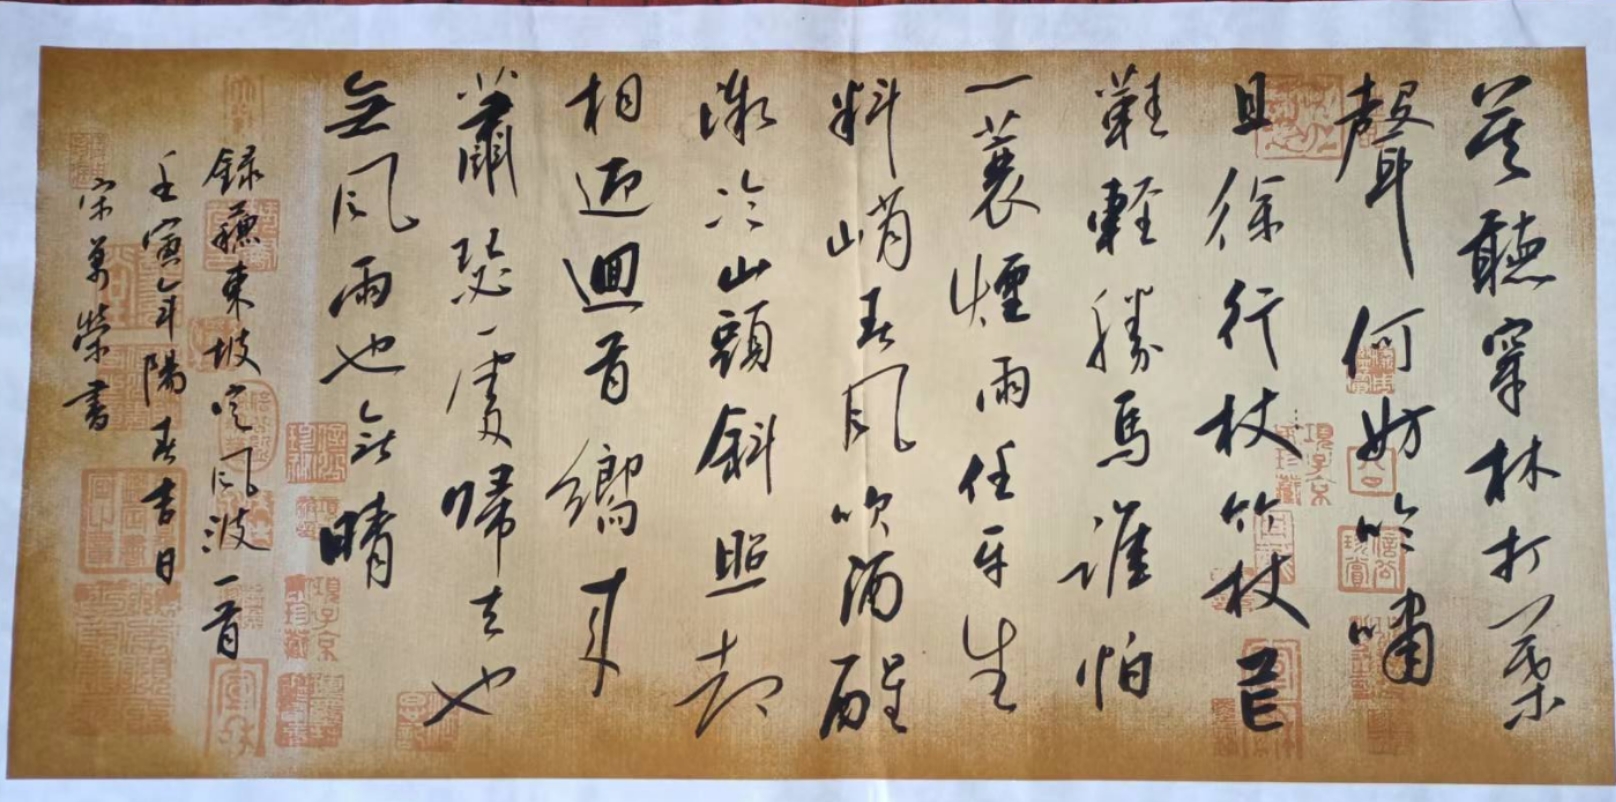 莫聽穿林打葉
聲何妨吟嘯
且徐行杖竹杖芒
鞋輕勝馬誰怕
一蓑煙雨任平生
料峭春風吹酒醒
微冷山頭斜照却
相迎迴首嚮來
蕭瑟處歸去也
無風雨也無晴
錄蘇東坡定風波一首
壬寅年陽春吉日
宋萬榮書
項子京
珍藏
項子京
珍藏